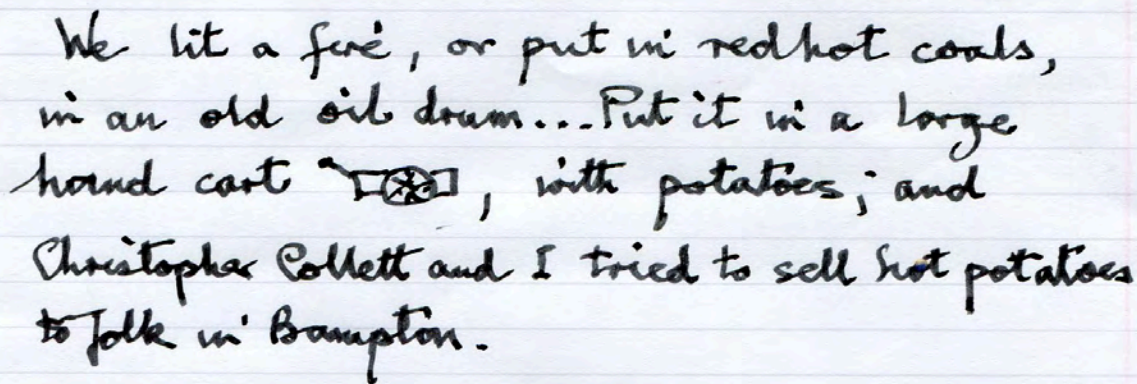 We lit a fire, or put in redhot coals,
in an old oil drum...Put it in a large
hand cart , with potatoes; and
Christopher Collett and I tried to sell hot potatoes
to folk in Brampton.